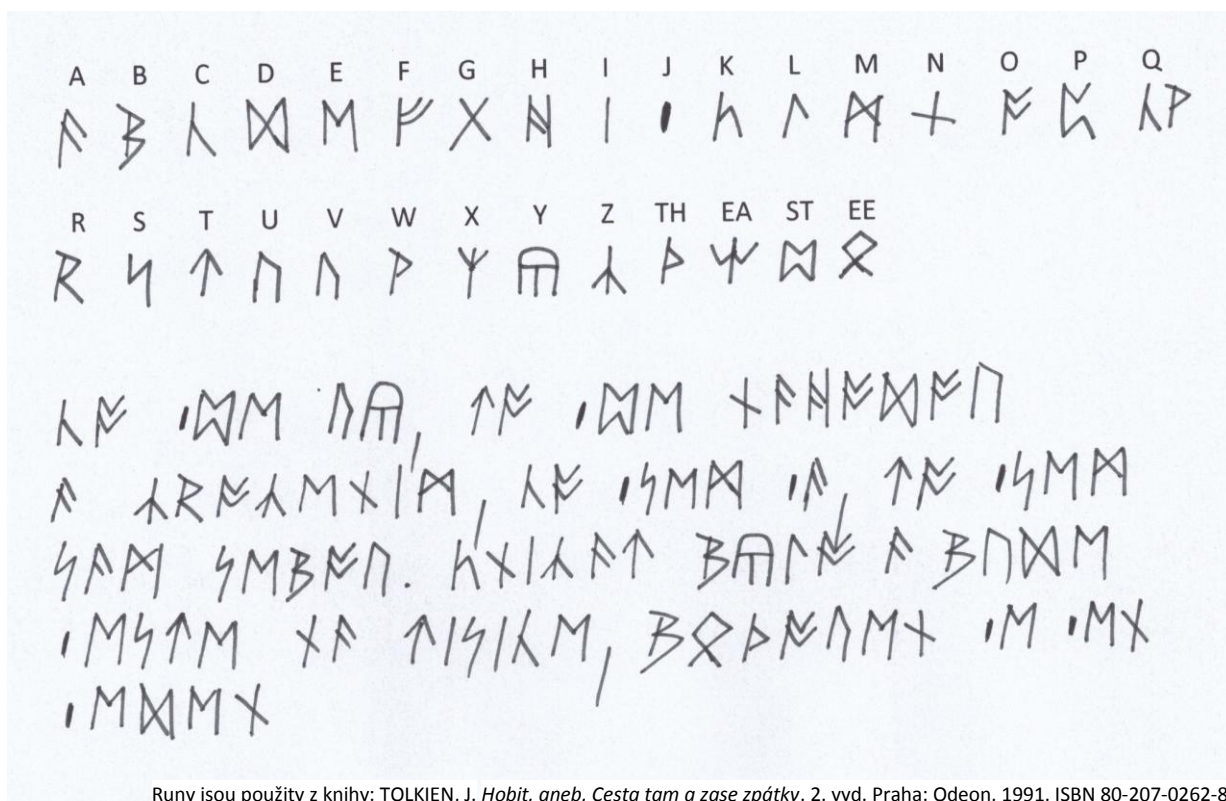 A B C D E F G H I J K L M N O P Q
ᚪ ᛒ ᚳ ᛞ ᛖ ᚠ ᚷ ᚻ ᛁ ᛁ ᛱ ᛚ ᛗ ᚾ ᚩ ᛈ ᚳᚹ
R S T U V W X Y Z TH EA ST EE
ᚱ ᛋ ᛏ ᚢ ᚢ ᚹ ᛉ ᚣ ᛣ ᚦ ᛠ ᛥ ᛟ
ᚳᚩ ᛁᛥᛖ ᚢᚣ, ᛏᚩ ᛁᛥᛖ ᚾᚪᚻᚩᛞᚩᚢ
ᚪ ᛣᚱᚩᛣᛖᚾᛁᛗ, ᚳᚩ ᛁᛋᛖᛗ ᛁᚪ, ᛏᚩ ᛁᛋᛖᛗ
ᛋᚪᛗ ᛋᛖᛒᚩᚢ. ᛱᚾᛁᛣᚪᛏ ᛒᚣᛚᚩ ᚪ ᛒᚢᛞᛖ
ᛁᛖᛋᛏᛖ ᚾᚪ ᛏᛁᛋᛁᚳᛖ, ᛒᛟᚦᚩᚢᛖᚾ ᛁᛖ ᛁᛖᚾ
ᛁᛖᛞᛖᚾ
Runy jsou použity z knihy: TOLKIEN, J. Hobit, aneb, Cesta tam a zase zpátky. 2. vyd. Praha: Odeon, 1991. ISBN 80-207-0262-8